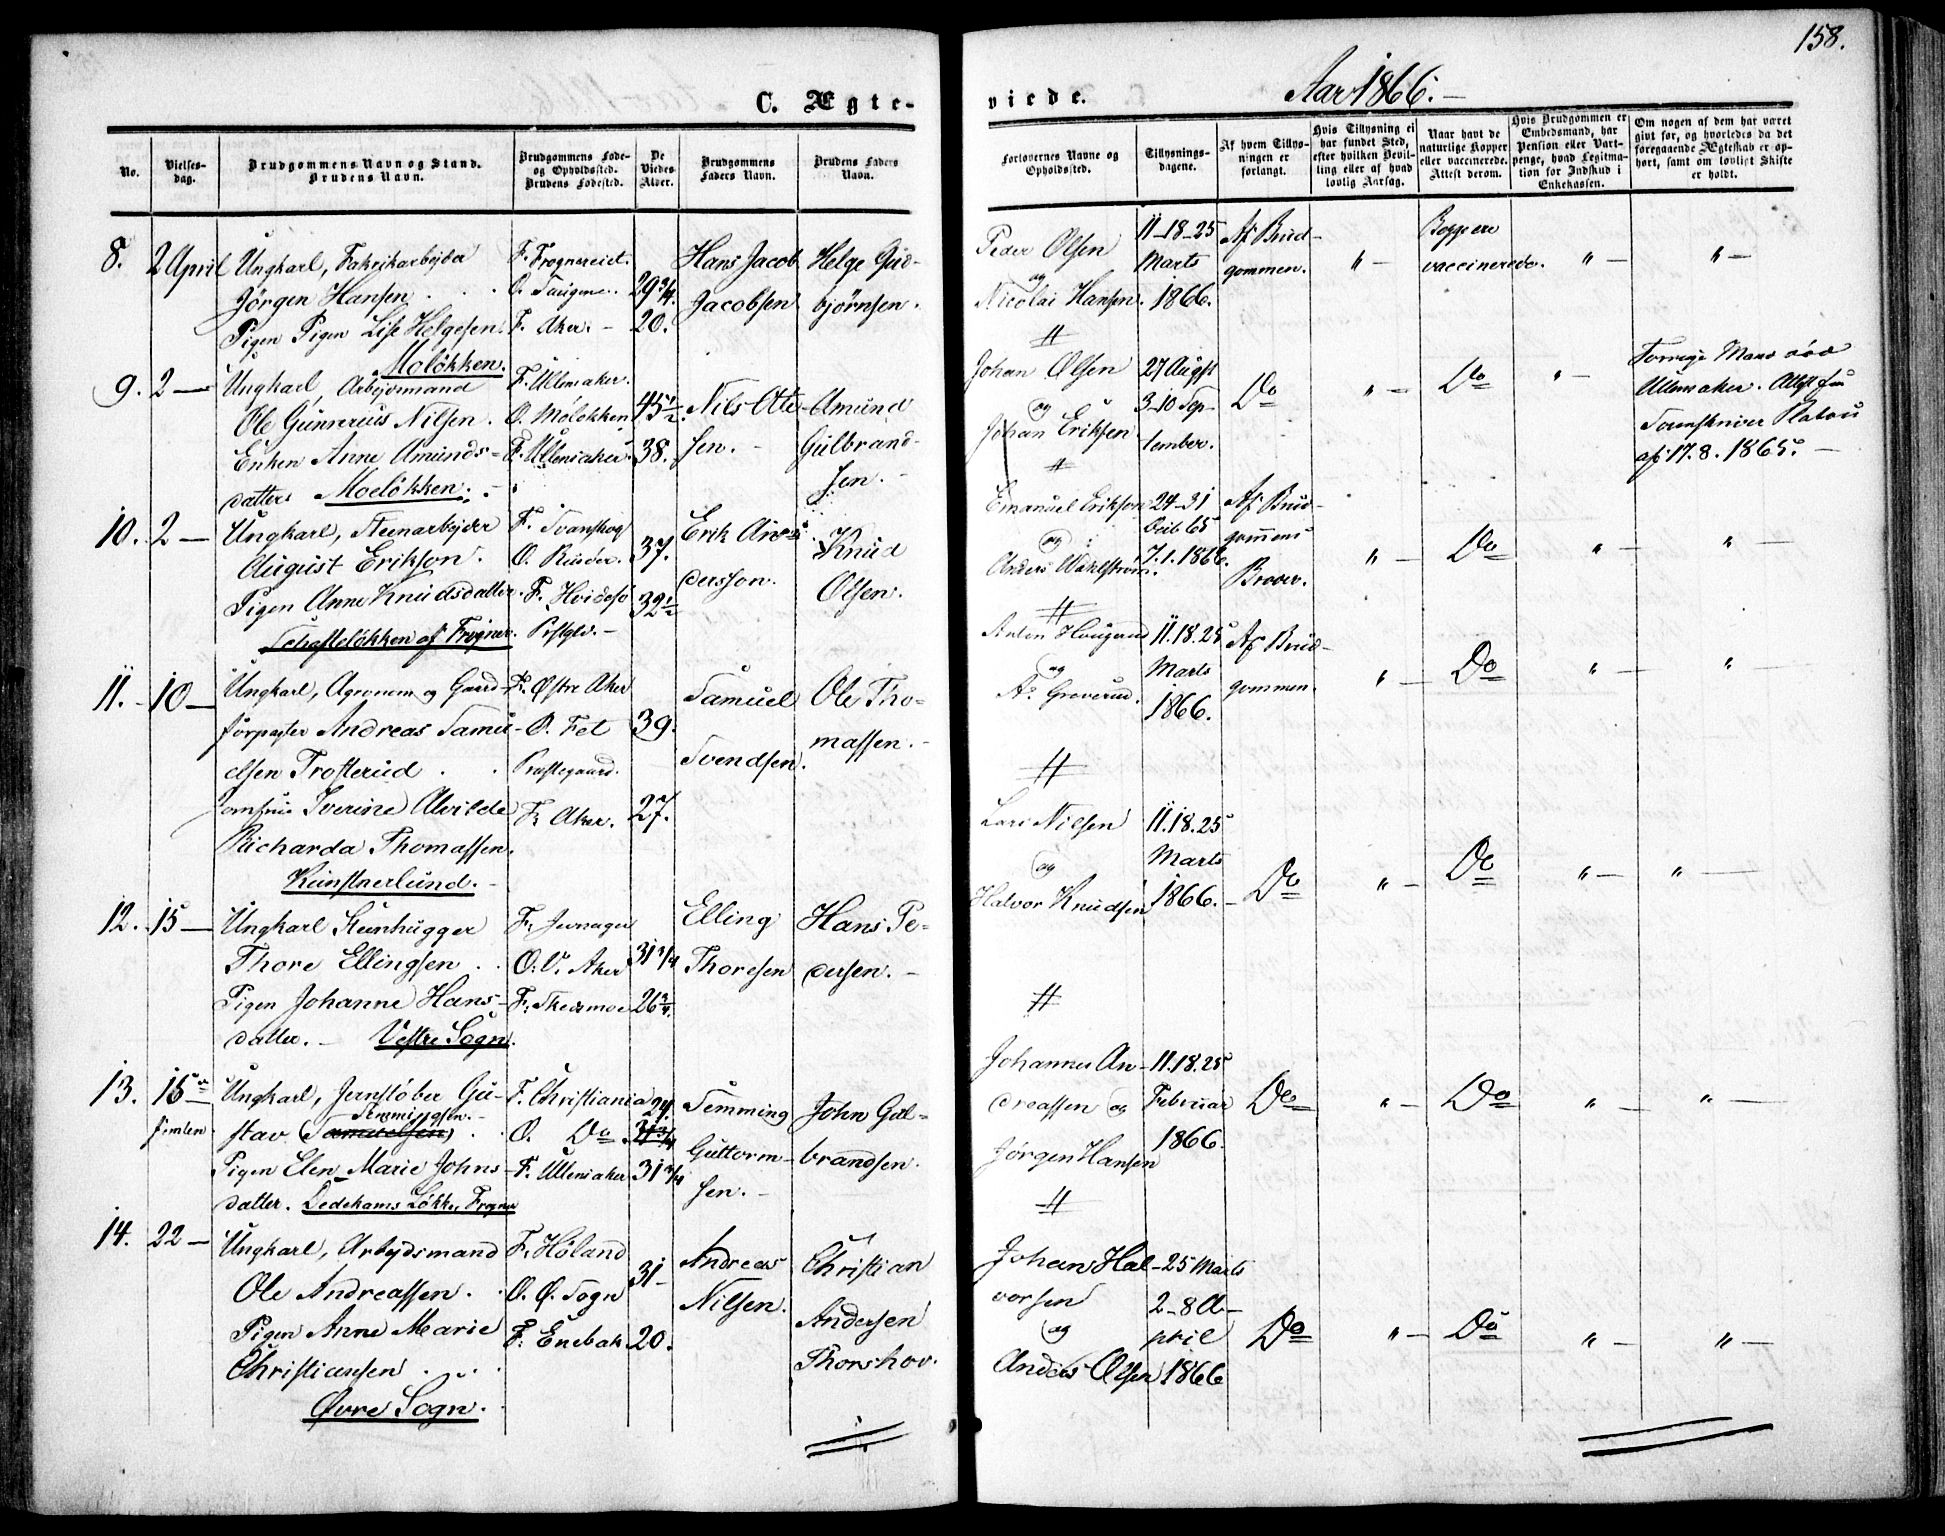 158.
C. Ægte-
viede.
Aar 1866.
No.
Vielses-
dag.
Brudgommens Navn og Stand.
Brudens Navn.
Brudgommens Føde-
og Opholdssted.
Brudens Fødested.
De
Viedes
Alder.
Brudgommens
Faders Navn.
Brudens Faders
Navn.
Forlovernes Navne og
Opholdssted.
Tillysnings-
dagene.
Af hvem Tillys-
ningen er
forlangt.
Hvis Tillysning ei
har fundet Sted,
efter hvilken Bevil-
ling eller af hvad
lovlig Aarsag.
Naar havt de
naturlige Kopper
eller vaccinerede.
Attest derom.
Hvis Brudgommen er
Embedsmand, har
Pension eller Vart-
penge, hvad Legitma-
tion for Indskud i
Enkekassen.
Om nogen af dem har været
givt før, og hvorledes da det
foregaaende Ægteskab er op-
hørt, samt om lovligt Skifte
er holdt.
8. 2 April
Ungkarl, Fabrikarbejder
Jørgen Hansen
Pigen Pigen Lise Helgesen.
Moløkken.
F. Frognereiet.
F. Aker.
29 3/4.
20.
Hans Jacob
Jacobsen
Helge Gud-
bjørnsen.
Peder Olsen
og
Nicolai Hansen.
11-18-25
Marts
1866.
Af Brud-
gommen.
" -
Begge ere
vaccinerede.
" -
" -
9. 2 -
Ungkarl, Arbejdsmand
Ole Gunnerius Nilsen.
Enken Anne Amunds-
datter Moeløkken.
F. Ullensaker.
O. Moløkken
F. Ullensaker.
45 1/2.
38.
Nils Ole-
sen.
Amund
Gulbrand-
sen.
Johan Olsen
og
Johan Eriksen
27 Augst
3-10 Sep-
tember.
Do
" -
Do
" -
Forrige Mand død
Ullensaker. Attest fra
Sorenskriver Platou
af 17.8.1865.
10. 2 -
Ungkarl, Steenarbejder
August Erikson.
Pigen Anne Knudsdatter.
Schafteløkken af Frogner.
F. Svanskog
O. Ruseløk.
F. Hvidesø
Præstgld.
37.
32 1/2
Erik An-
dersson.
Knud
Olsen.
Emanuel Erikson
og
Anders Wahlstrøm.
24-31
Octb 65
7.1.1866.
Af Brud-
gommens
Broder.
" -
Do
" -
" -
11. 10 -
Ungkarl, Agronom og Gaard-
forpagter Andreas Samu-
elsen Trosterud
Jomfru Iverine Alvilde
Richarda Thomassen.
Kunstnerlund.
F. Østre Aker
O. Fet
Præstegaard.
F. Aker.
39.
27.
Samuel
Svendsen.
Ole Tho-
massen.
Anton Haugerud
og
As Greverud.
11.18.25
Marts
1866.
Af Brud-
gommen.
" -
Do
" -
" -
12. 15 -
Ungkarl Steenhugger
Thore Ellingsen
Pigen Johanne Hans-
datter. Vestre Sogn.
F. Jevnager
O. V. Aker
F. Skedsmoe
31 3/4
26 3/4.
Elling
Thoresen
Hans Pe-
dersen.
Lars Nilsen
og
Halvor Knudsen
11.18.25
Marts
1866.
Do
" -
Do
" -
" -
13. 15 -
Ungkarl, Jernstøber Gu-
Semmingsen.
stav (Samuelsen)
Pigen Elen Marie Johns-
datter. Dedekams Løkke, Frogner
F. Christiania
O. Do
F. Ullensaker
24.
31 3/4
31 3/4
Semming
Guttorm-
sen.
John Gul-
brandsen.
Johannes An-
dreassen og
Jørgen Hansen
11.18.25
Februar
1866.
Do
" -
Do
" -
" -
14. 22 -
Ungkarl, Arbejdsmand
Ole Andreassen
Pigen Anne Marie
Christiansen
Øvre Sogn.
F. Høland
O. Ø. Sogn
F. Enebak
31 -
20.
Andreas
Nilsen.
Christian
Andersen
Thorshov.
Johan Hal-
vorsen
og
Anders Olsen
25 Marts
2-8 A-
pril
1866
Do
" -
Do
" -
" -